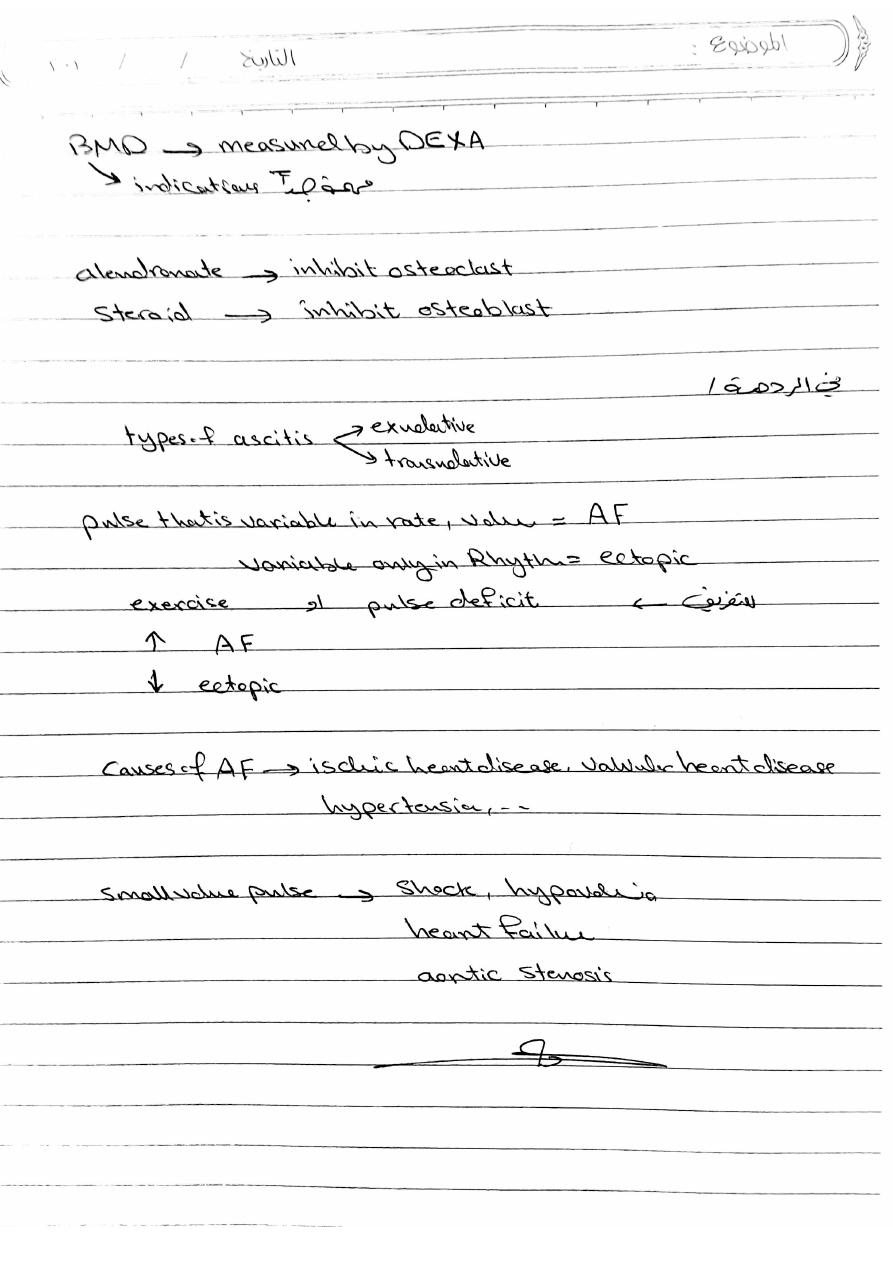 الموضوع :
التاريخ / / ١٠١
BMD → measured by DEXA
↘ indications مهمة جداً
alendronate → inhibit osteoclast
Steroid → inhibit osteoblast
في الردهة /
types of ascitis ↗ exudative
↘ transudative
pulse that is variable in rate, volume = AF
variable only in Rhythm = ectopic
للتفريق ← pulse deficit او exercise
↑ AF
↓ ectopic
Causes of AF → ischic heart disease, valvular heart disease
hypertension, --
Small volume pulse → Shock, hypovolemia
heart failure
aortic stenosis